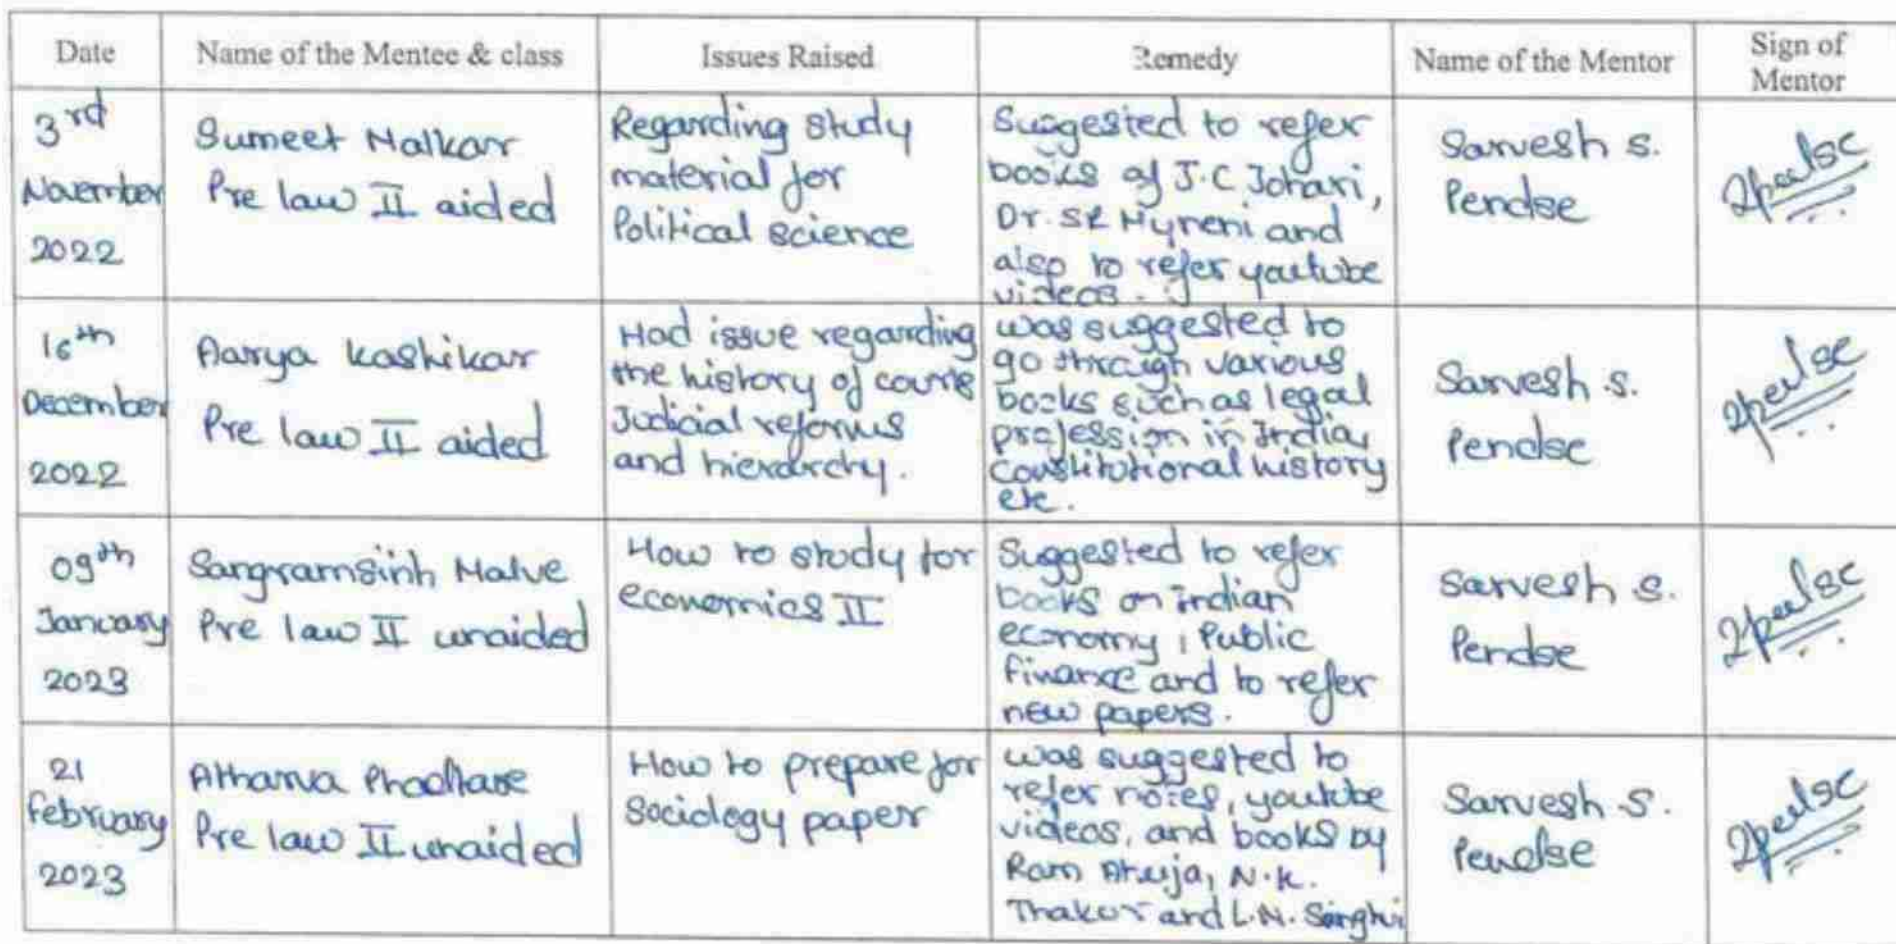 Date
Name of the Mentee & class
Issues Raised
Remedy
Name of the Mentor
Sign of
Mentor
3rd
November
2022
Sumeet Malkar
Pre law II aided
Regarding study
material for
Political science
Suggested to refer
books of J.C Johari,
Dr. SR Myreni and
also to refer youtube
videos.
Sarvesh S.
Pendse
16th
December
2022
Aarya Kashikar
Pre law II aided
Had issue regarding
the history of courts
Judicial reforms
and hierarchy.
was suggested to
go through various
books such as legal
profession in India,
Constitutional history
etc.
Sarvesh S.
Pendse
09th
January
2023
Sangramsinh Malve
Pre law II unaided
How to study for
economics II
Suggested to refer
books on indian
economy, Public
finance and to refer
new papers.
Sarvesh S.
Pendse
21
February
2023
Atharva
Pre law II unaided
How to prepare for
Sociology paper
was suggested to
refer notes, youtube
videos, and books by
Ram Ahuja, N.K.
Thakur and L.N. Singhvi
Sarvesh S.
Pendse